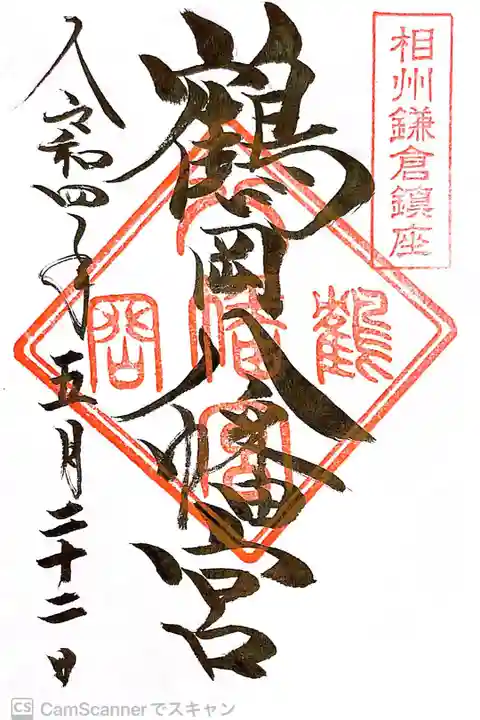 相州鎌倉鎮座
鶴岡八幡宮
鶴岡八幡宮
令和四年五月二十二日
CS CamScannerでスキャン